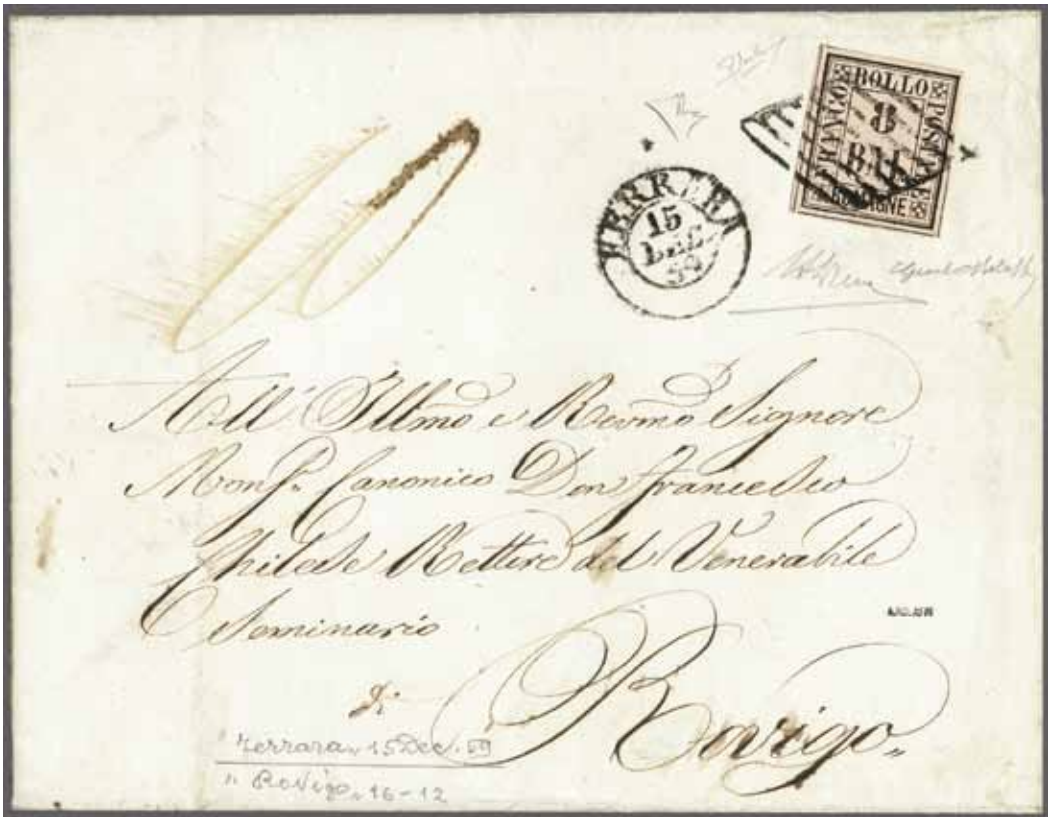 FRANCO
BOLLO
POSTALE
8
BAJ
ROMAGNE
FERRARA
15
DEC.
59
10
All' Illmo e Revmo Signore
Monsr. Canonico Don Francesco
Rettore del Venerabile
Seminario
di
Rovigo
Ferrara, 15 Dec. 59
" Rovigo, 16-12